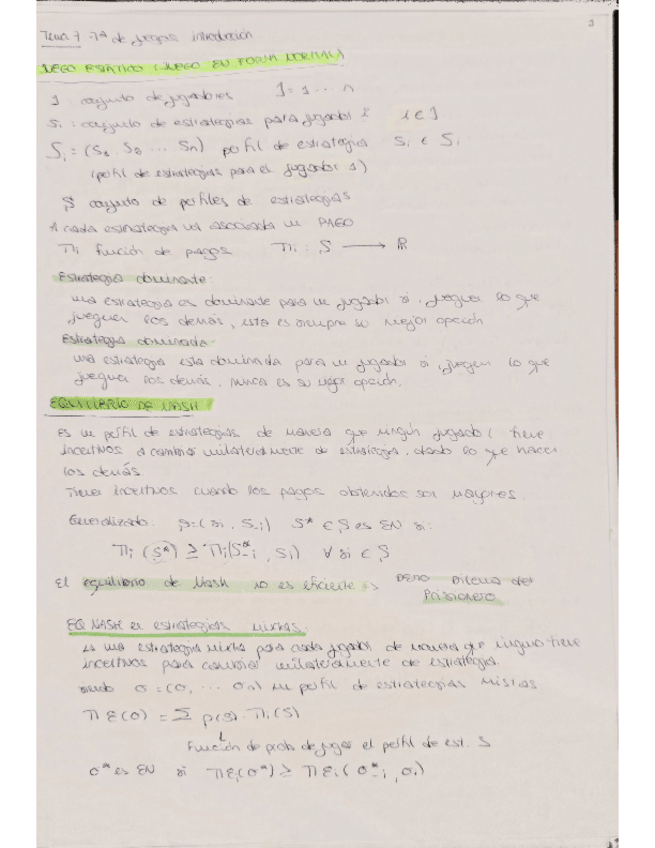 3
Tema 7 Tª de juegos introducción
JUEGO ESTÁTICO (JUEGO EN FORMA NORMAL)
J conjunto de jugadores J = 1 ... n
Si : conjunto de estrategias para jugador i i ∈ J
Si = (S1, S2 ... Sn) perfil de estrategia si ∈ Si
(perfil de estrategias para el jugador 1)
S conjunto de perfiles de estrategias
A cada estrategia va asociada un PAGO
Πi función de pagos Πi : S → ℝ
Estrategia dominante:
una estrategia es dominante para un jugador si, jueguen lo que
jueguen los demás, esta es siempre su mejor opción
Estrategia dominada
una estrategia esta dominada para un jugador si, jueguen lo que
jueguen los demás, nunca es su mejor opción.
EQUILIBRIO DE NASH
Es un perfil de estrategias de manera que ningún jugador tiene
incentivos a cambiar unilateralmente de estrategia, dado lo que hacen
los demás.
Tienen incentivos cuando los pagos obtenidos son mayores.
Generalizado: S=(si, S-i) S* ∈ S es EN si:
Πi (S*) ≥ Πi(S*-i, Si) ∀ si ∈ S
El equilibrio de Nash no es eficiente Dilema del
Prisionero
EQ NASH en estrategias mixtas:
es una estrategia mixta para cada jugador de manera que ninguno tiene
incentivos para cambiar unilateralmente de estrategia.
siendo σ = (σ, ... σn) un perfil de estrategias mixtas
Π E(σ) = Σ p(s) · Πi(S)
Función de prob de jugar el perfil de est. S
σ* es EN si ΠEi(σ*) ≥ ΠEi(σ*-i, σi)